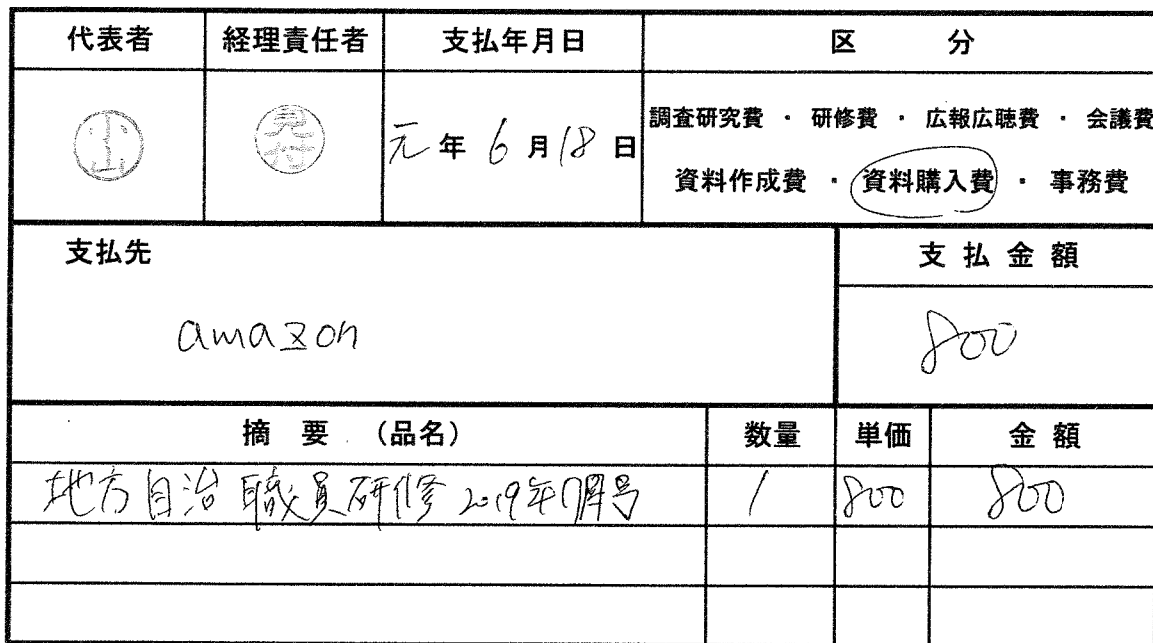 代表者 経理責任者 支払年月日 区 分
小山 見付 元年 6月 18日
調査研究費 ・ 研修費 ・ 広報広聴費 ・ 会議費
資料作成費 ・ 資料購入費 ・ 事務費
支払先 支払金額
amazon 800
摘 要 (品名) 数量 単価 金 額
地方自治 職員研修 2019年7月号 1 800 800